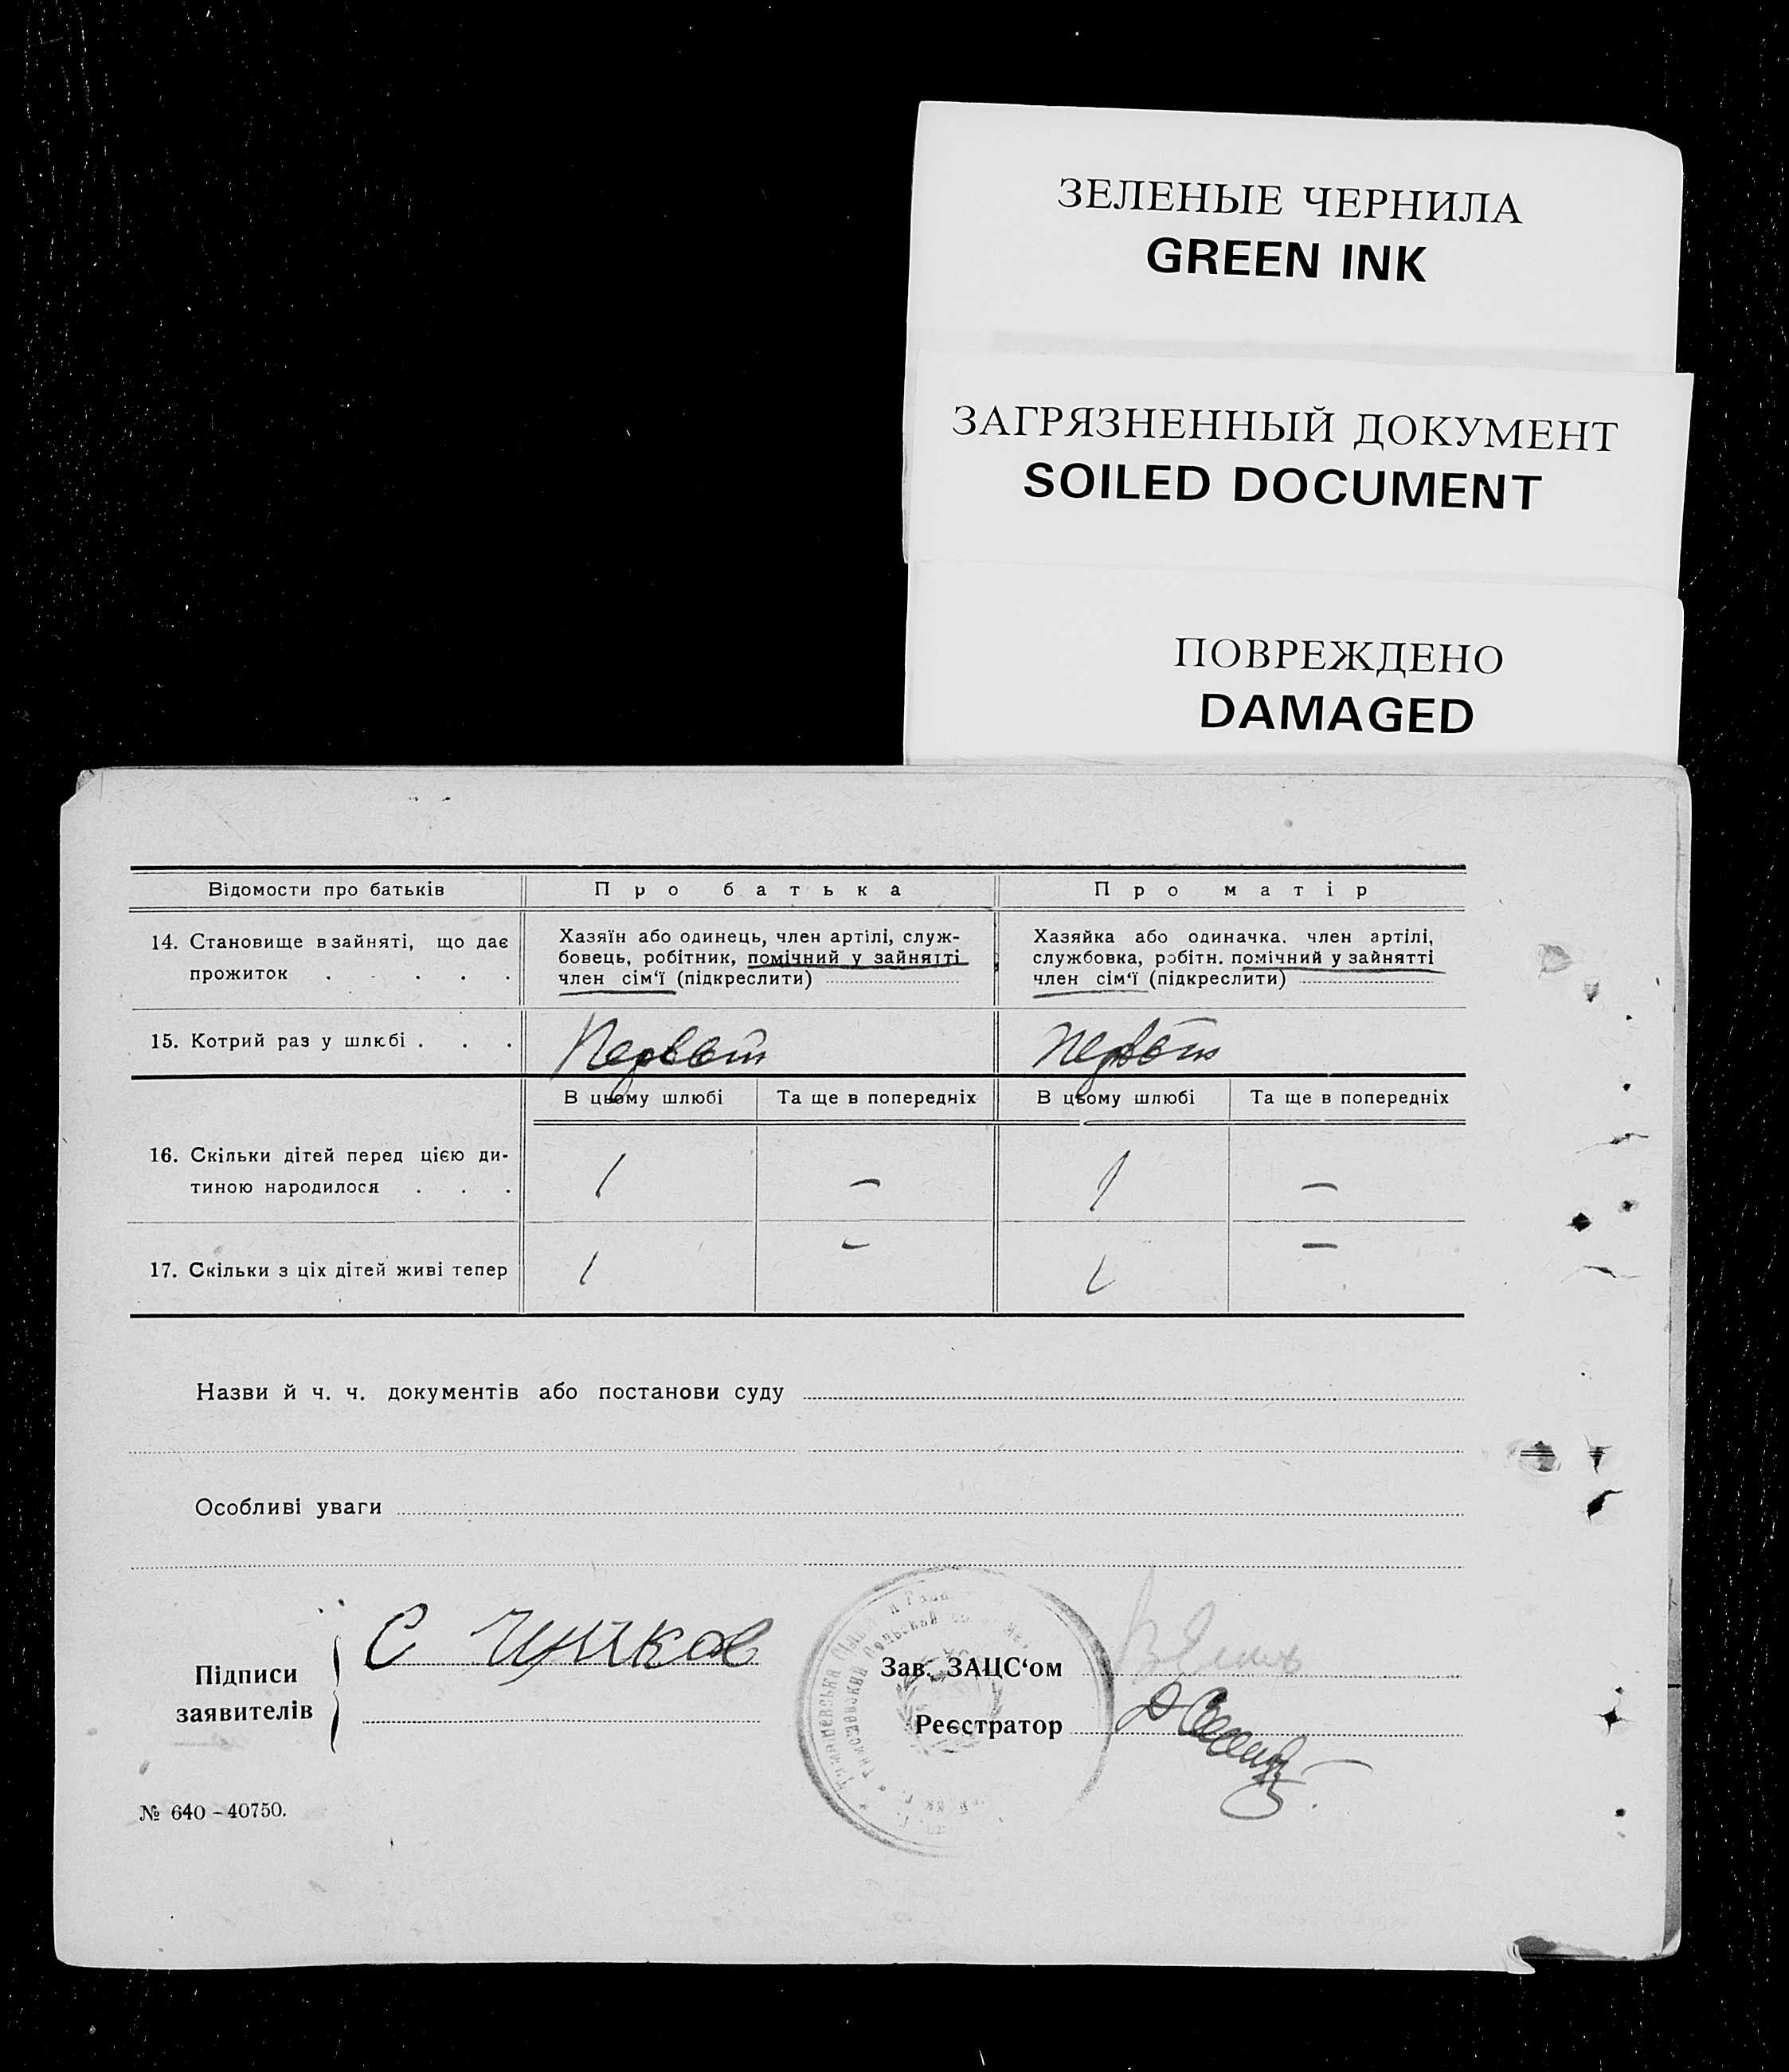 ЗЕЛЕНЫЕ ЧЕРНИЛА
GREEN INK
ЗАГРЯЗНЕННЫЙ ДОКУМЕНТ
SOILED DOCUMENT
ПОВРЕЖДЕНО
DAMAGED
Відомости про батьків
Про батька
Про матір
14. Становище в зайняті, що дає
прожиток . . . . .
Хазяїн або одинець, член артілі, служ-
бовець, робітник, помічний у зайнятті
член сім'ї (підкреслити)
Хазяйка або одиначка. член артілі,
службовка, робітн. помічний у зайнятті
член сім'ї (підкреслити)
15. Котрий раз у шлюбі . . .
Первый
Первый
В цьому шлюбі
Та ще в попередніх
В цьому шлюбі
Та ще в попередніх
16. Скільки дітей перед цією ди-
тиною народилося . . .
1 — 1 —
17. Скільки з ціх дітей живі тепер
1 — 1 —
Назви й ч. ч. документів або постанови суду
Особливі уваги
Підписи
заявителів
С
Зав. ЗАЦС'ом
Реєстратор
№ 640 – 40750.